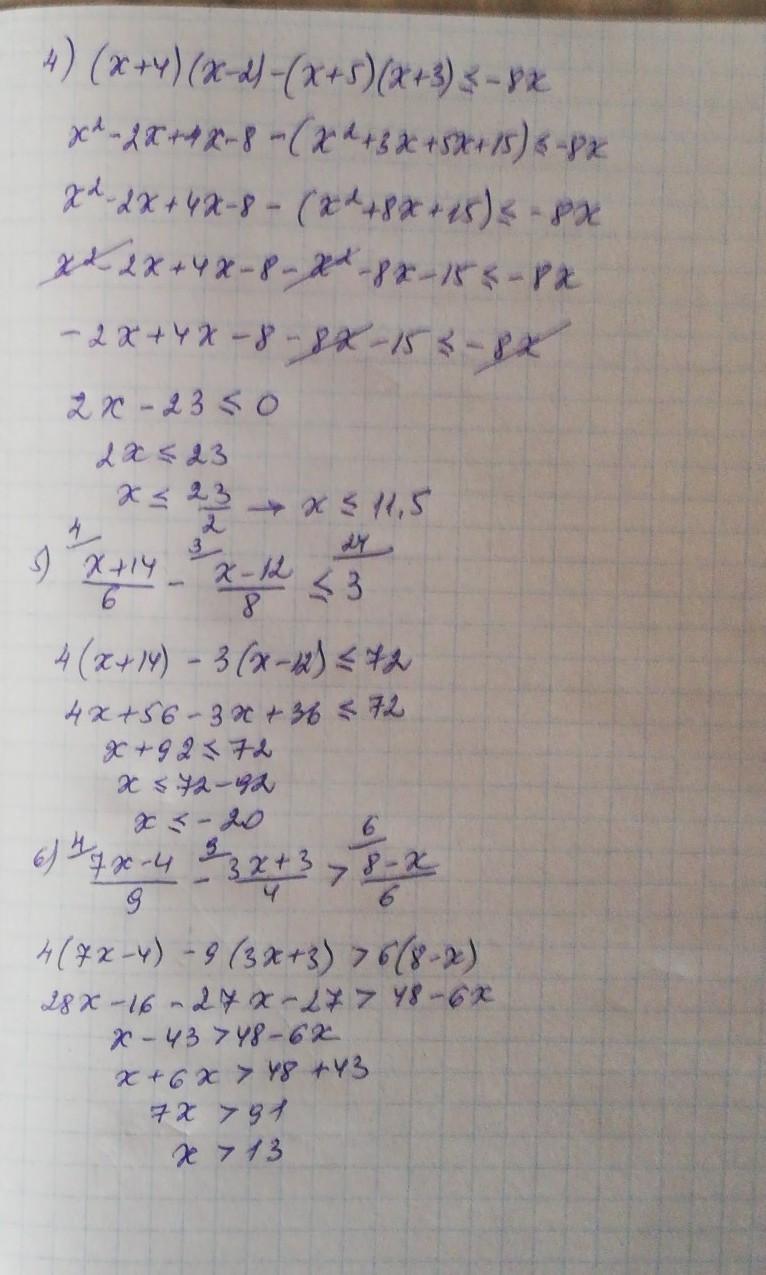 4) (x+4)(x-2)-(x+5)(x+3)≤-8x
x²-2x+4x-8-(x²+3x+5x+15)≤-8x
x²-2x+4x-8-(x²+8x+15)≤-8x
x²-2x+4x-8-x²-8x-15≤-8x
-2x+4x-8-8x-15≤-8x
2x-23≤0
2x≤23
x≤23/2 → x≤11,5
5) 4/ (x+14)/6 - 3/ (x-12)/8 ≤ 24/ 3
4(x+14)-3(x-12)≤72
4x+56-3x+36≤72
x+92≤72
x≤72-92
x≤-20
6) 4/ (7x-4)/9 - 9/ (3x+3)/4 > 6/ (8-x)/6
4(7x-4)-9(3x+3)>6(8-x)
28x-16-27x-27>48-6x
x-43>48-6x
x+6x>48+43
7x>91
x>13